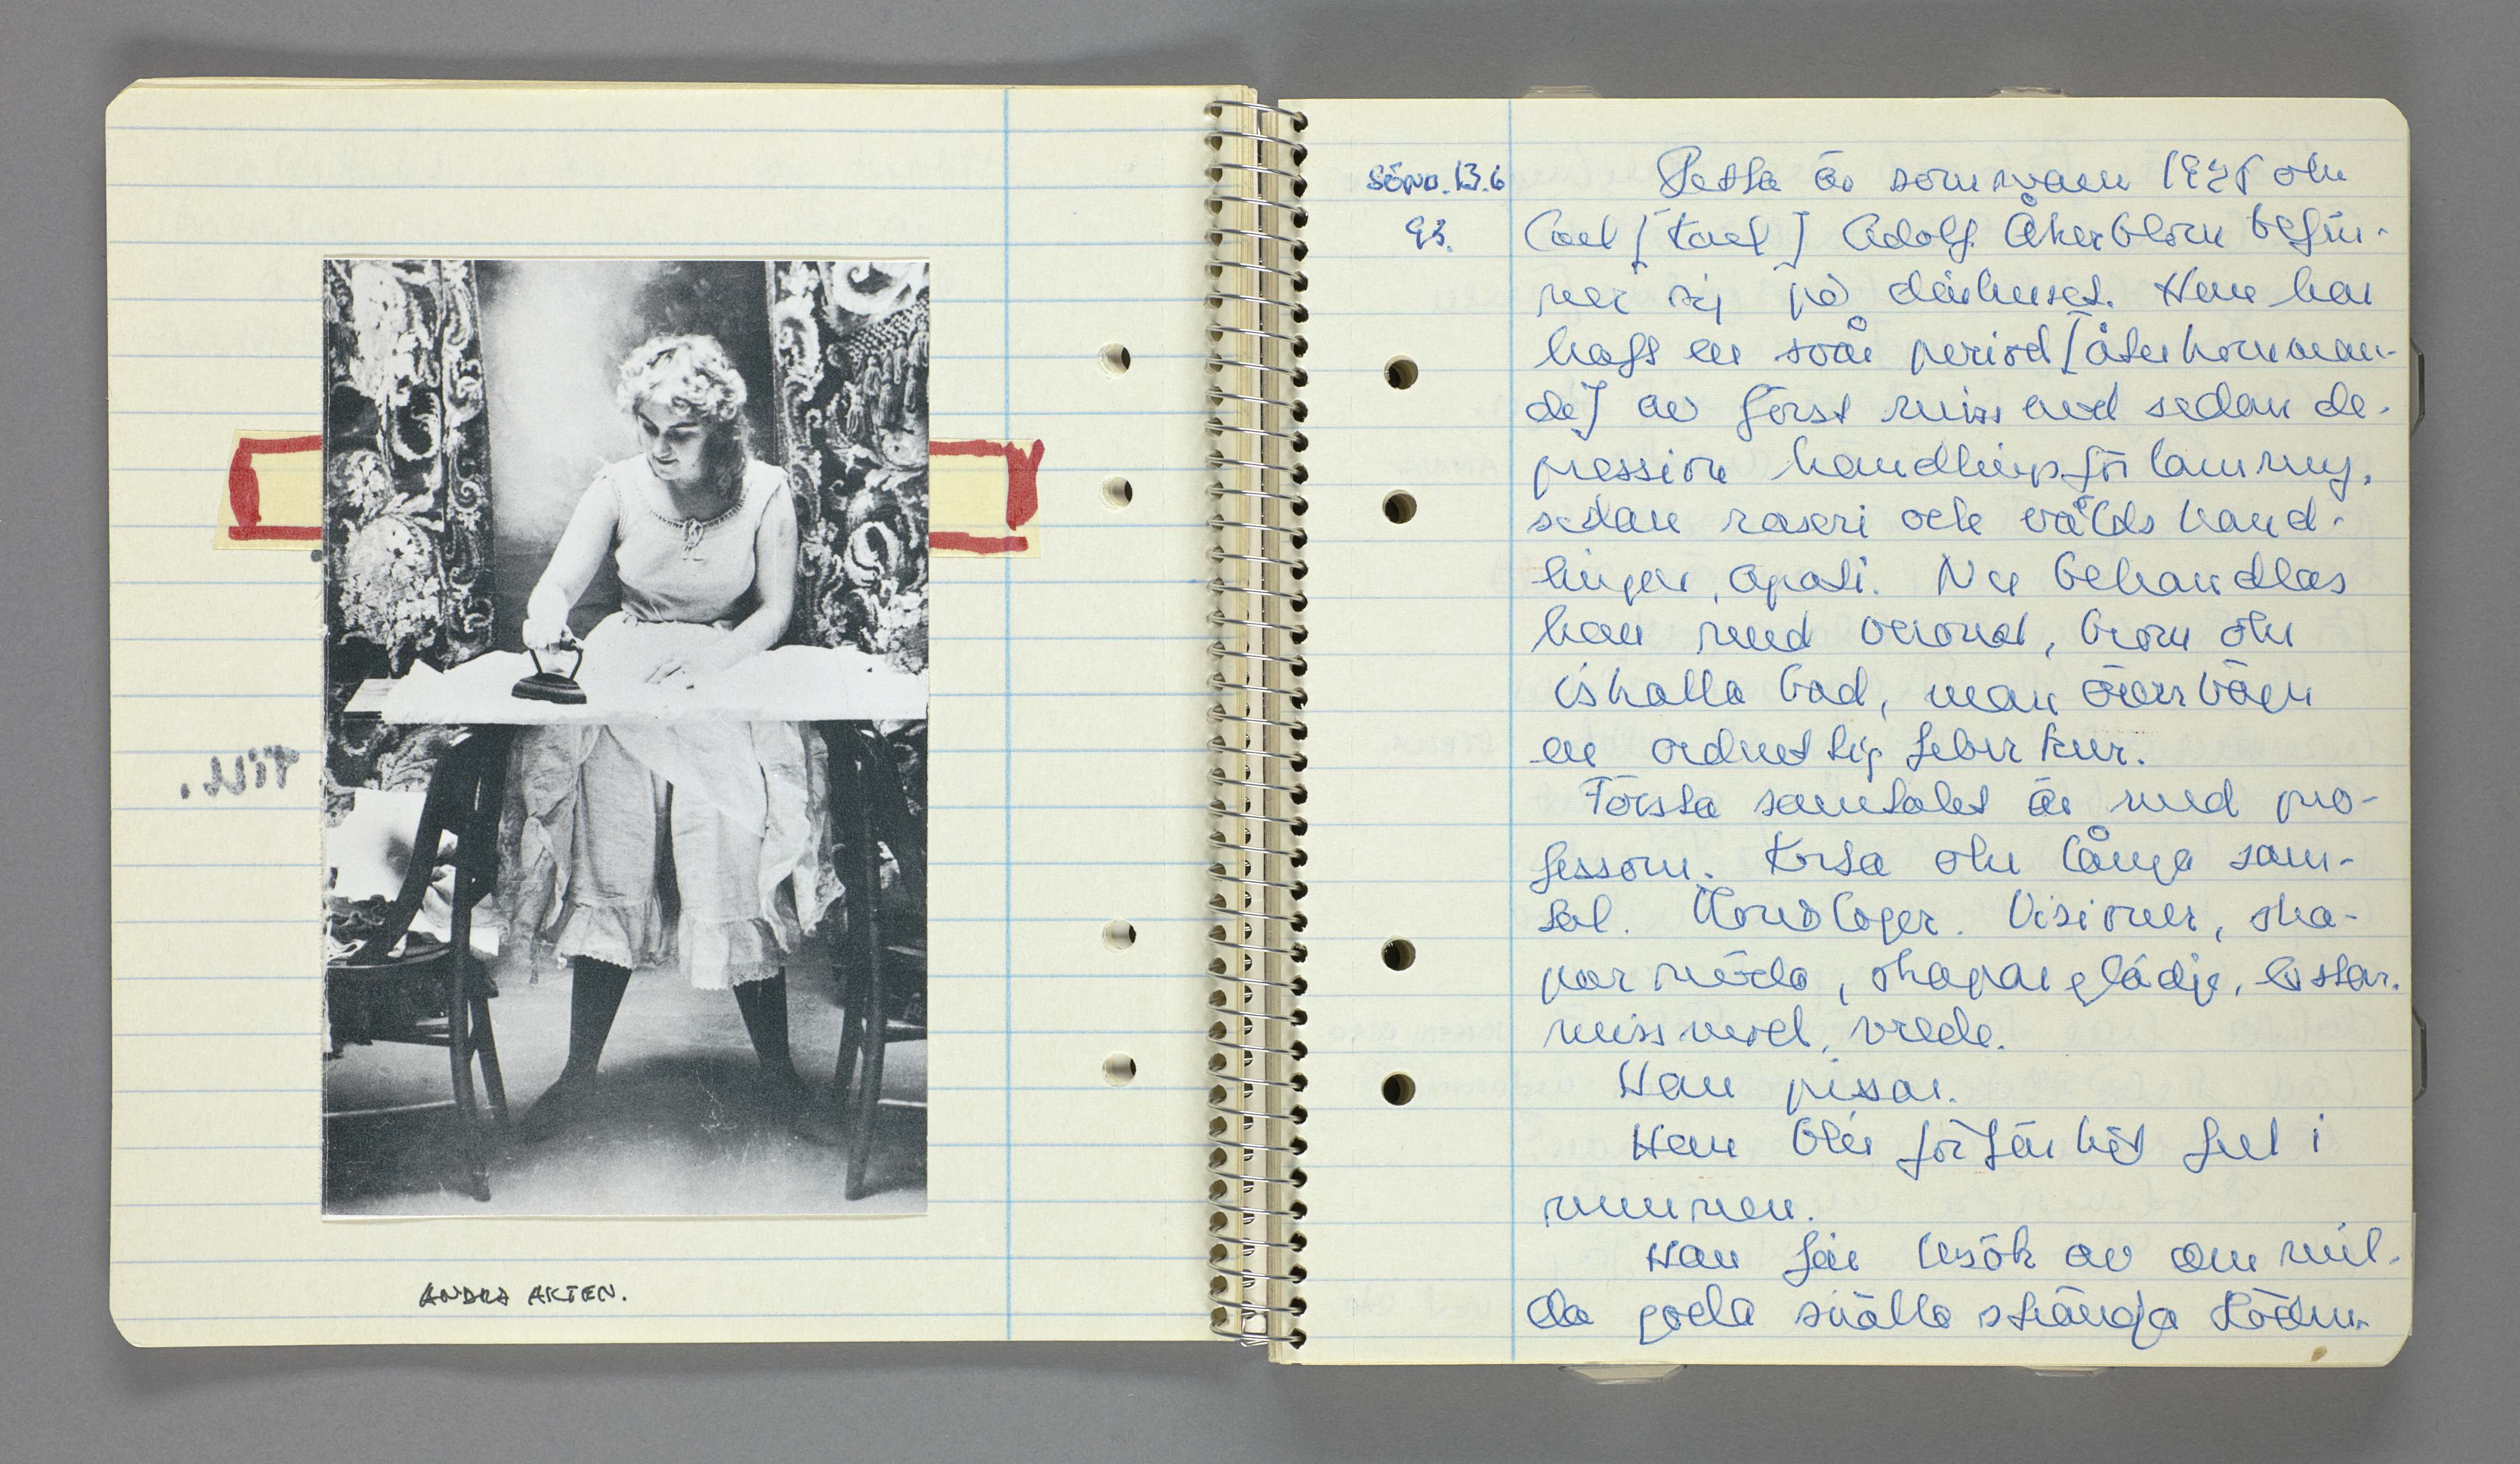 Till.
ANDRA AKTEN.
SÖND. 13.6
93.
Detta är sommaren och
Carl [Karl] Adolf Åkerblom befin-
ner sig på dårhuset. Han har
haft en svår period [återkomman-
de] av först missmod sedan de-
pression handlingsförlamning,
sedan raseri och våldshand-
lingar, apati. Nu behandlas
han med veronal, brom och
iskalla bad, man överväger
en ordentlig feberkur.
Första samtalet är med pro-
fessorn. Korta och långa sam-
tal. Monologer. Visioner, ska-
par möda, skapar glädje,
missmod, vrede.
Han pissar.
Han blir förfärligt full i
munnen.
Han får besök av den mil-
da goda snälla stränga